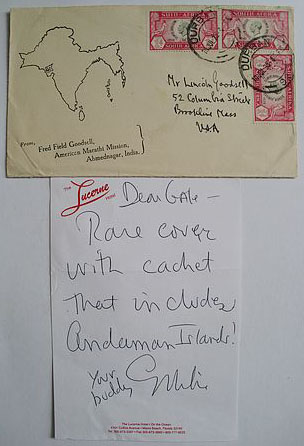 SOUTH AFRICA
SOUTH AFRICA
SOUTH AFRICA
Mr Lincoln Goodsell
52 Columbia Street
Brookline Mass
USA
From,
Fred Field Goodsell,
American Marathi Mission,
Ahmednagar, India.
The Lucerne Hotel
Dear Gale –
Rare cover
with cachet
that includes
Andaman Islands!
Your
buddy
The Lucerne Hotel • On the Ocean